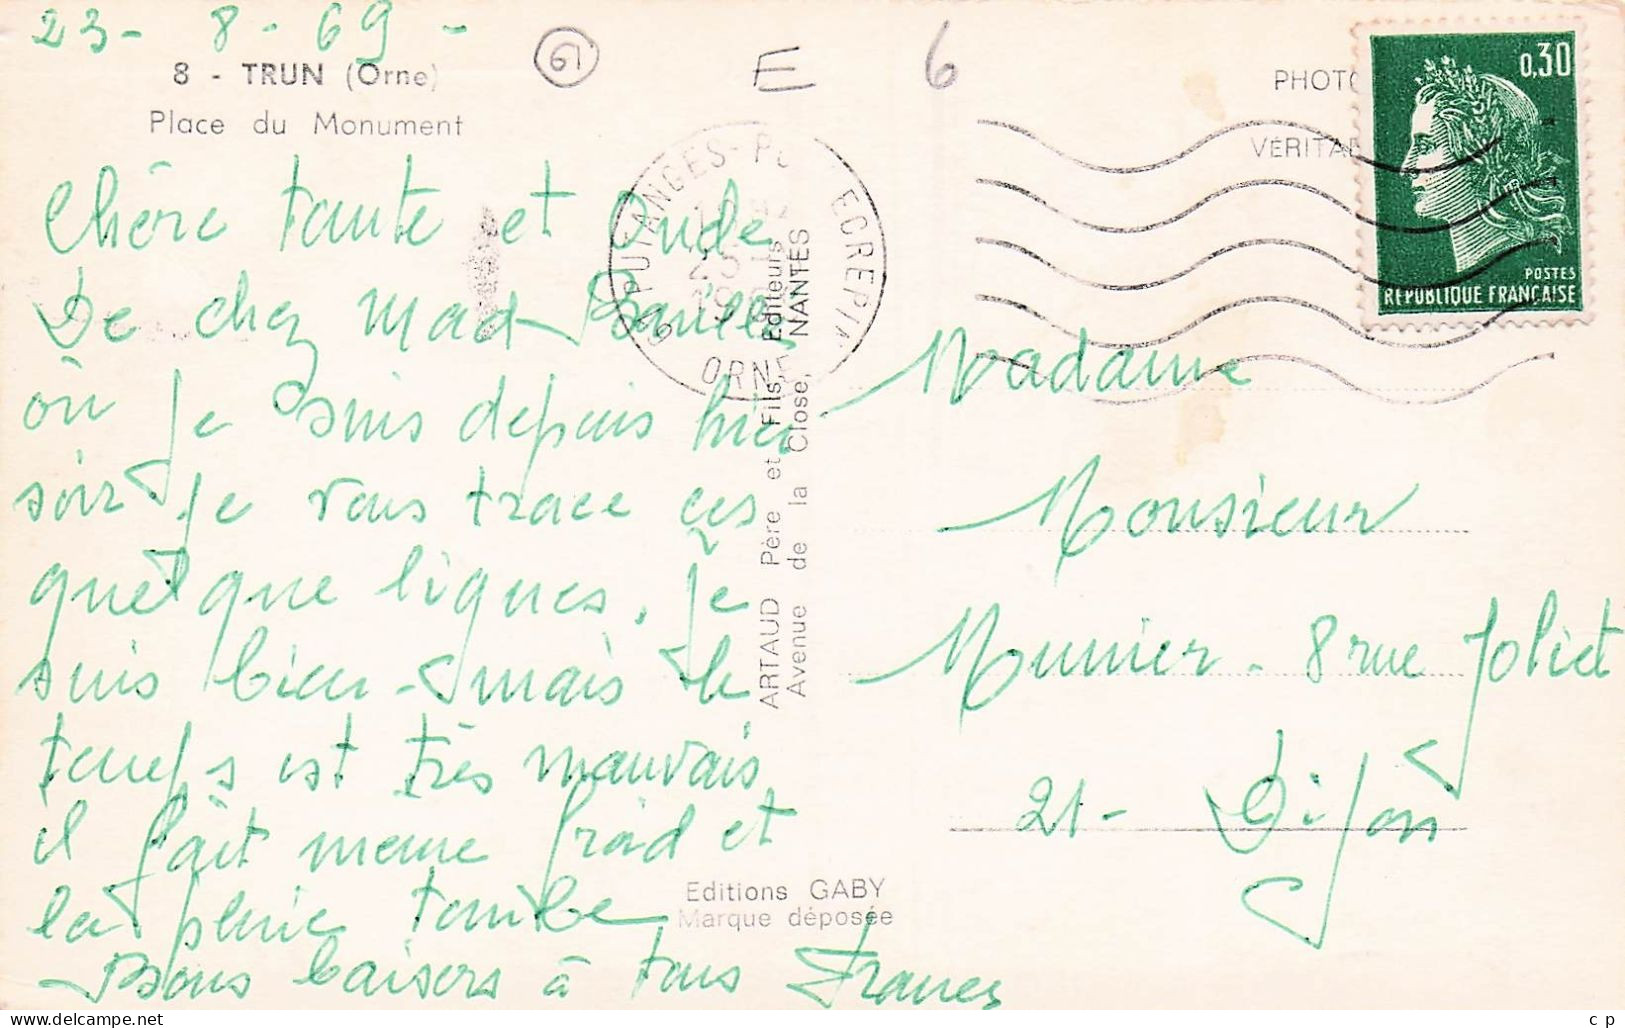 23 - 8 - 69 -
8 - TRUN (Orne)
Place du Monument
61
E
6
Chère tante et Oncle
De chez Mad
où je suis depuis hier
soir je vous trace ces
quelque lignes, je
suis bien - mais le
temps est très mauvais
il fait meme froid et
la pluie tombe
Bons baisers à tous
PUTANGES-P ECREPIN
ORNE
ARTAUD Père et Fils, Editeurs
Avenue de la Close, NANTES
Editions GABY
Marque déposée
PHOTO
VÉRITAB
0,30
POSTES
RÉPUBLIQUE FRANÇAISE
Madame
Monsieur
Munier - 8 rue Joliet
21 - Dijon
c p
www.delcampe.net